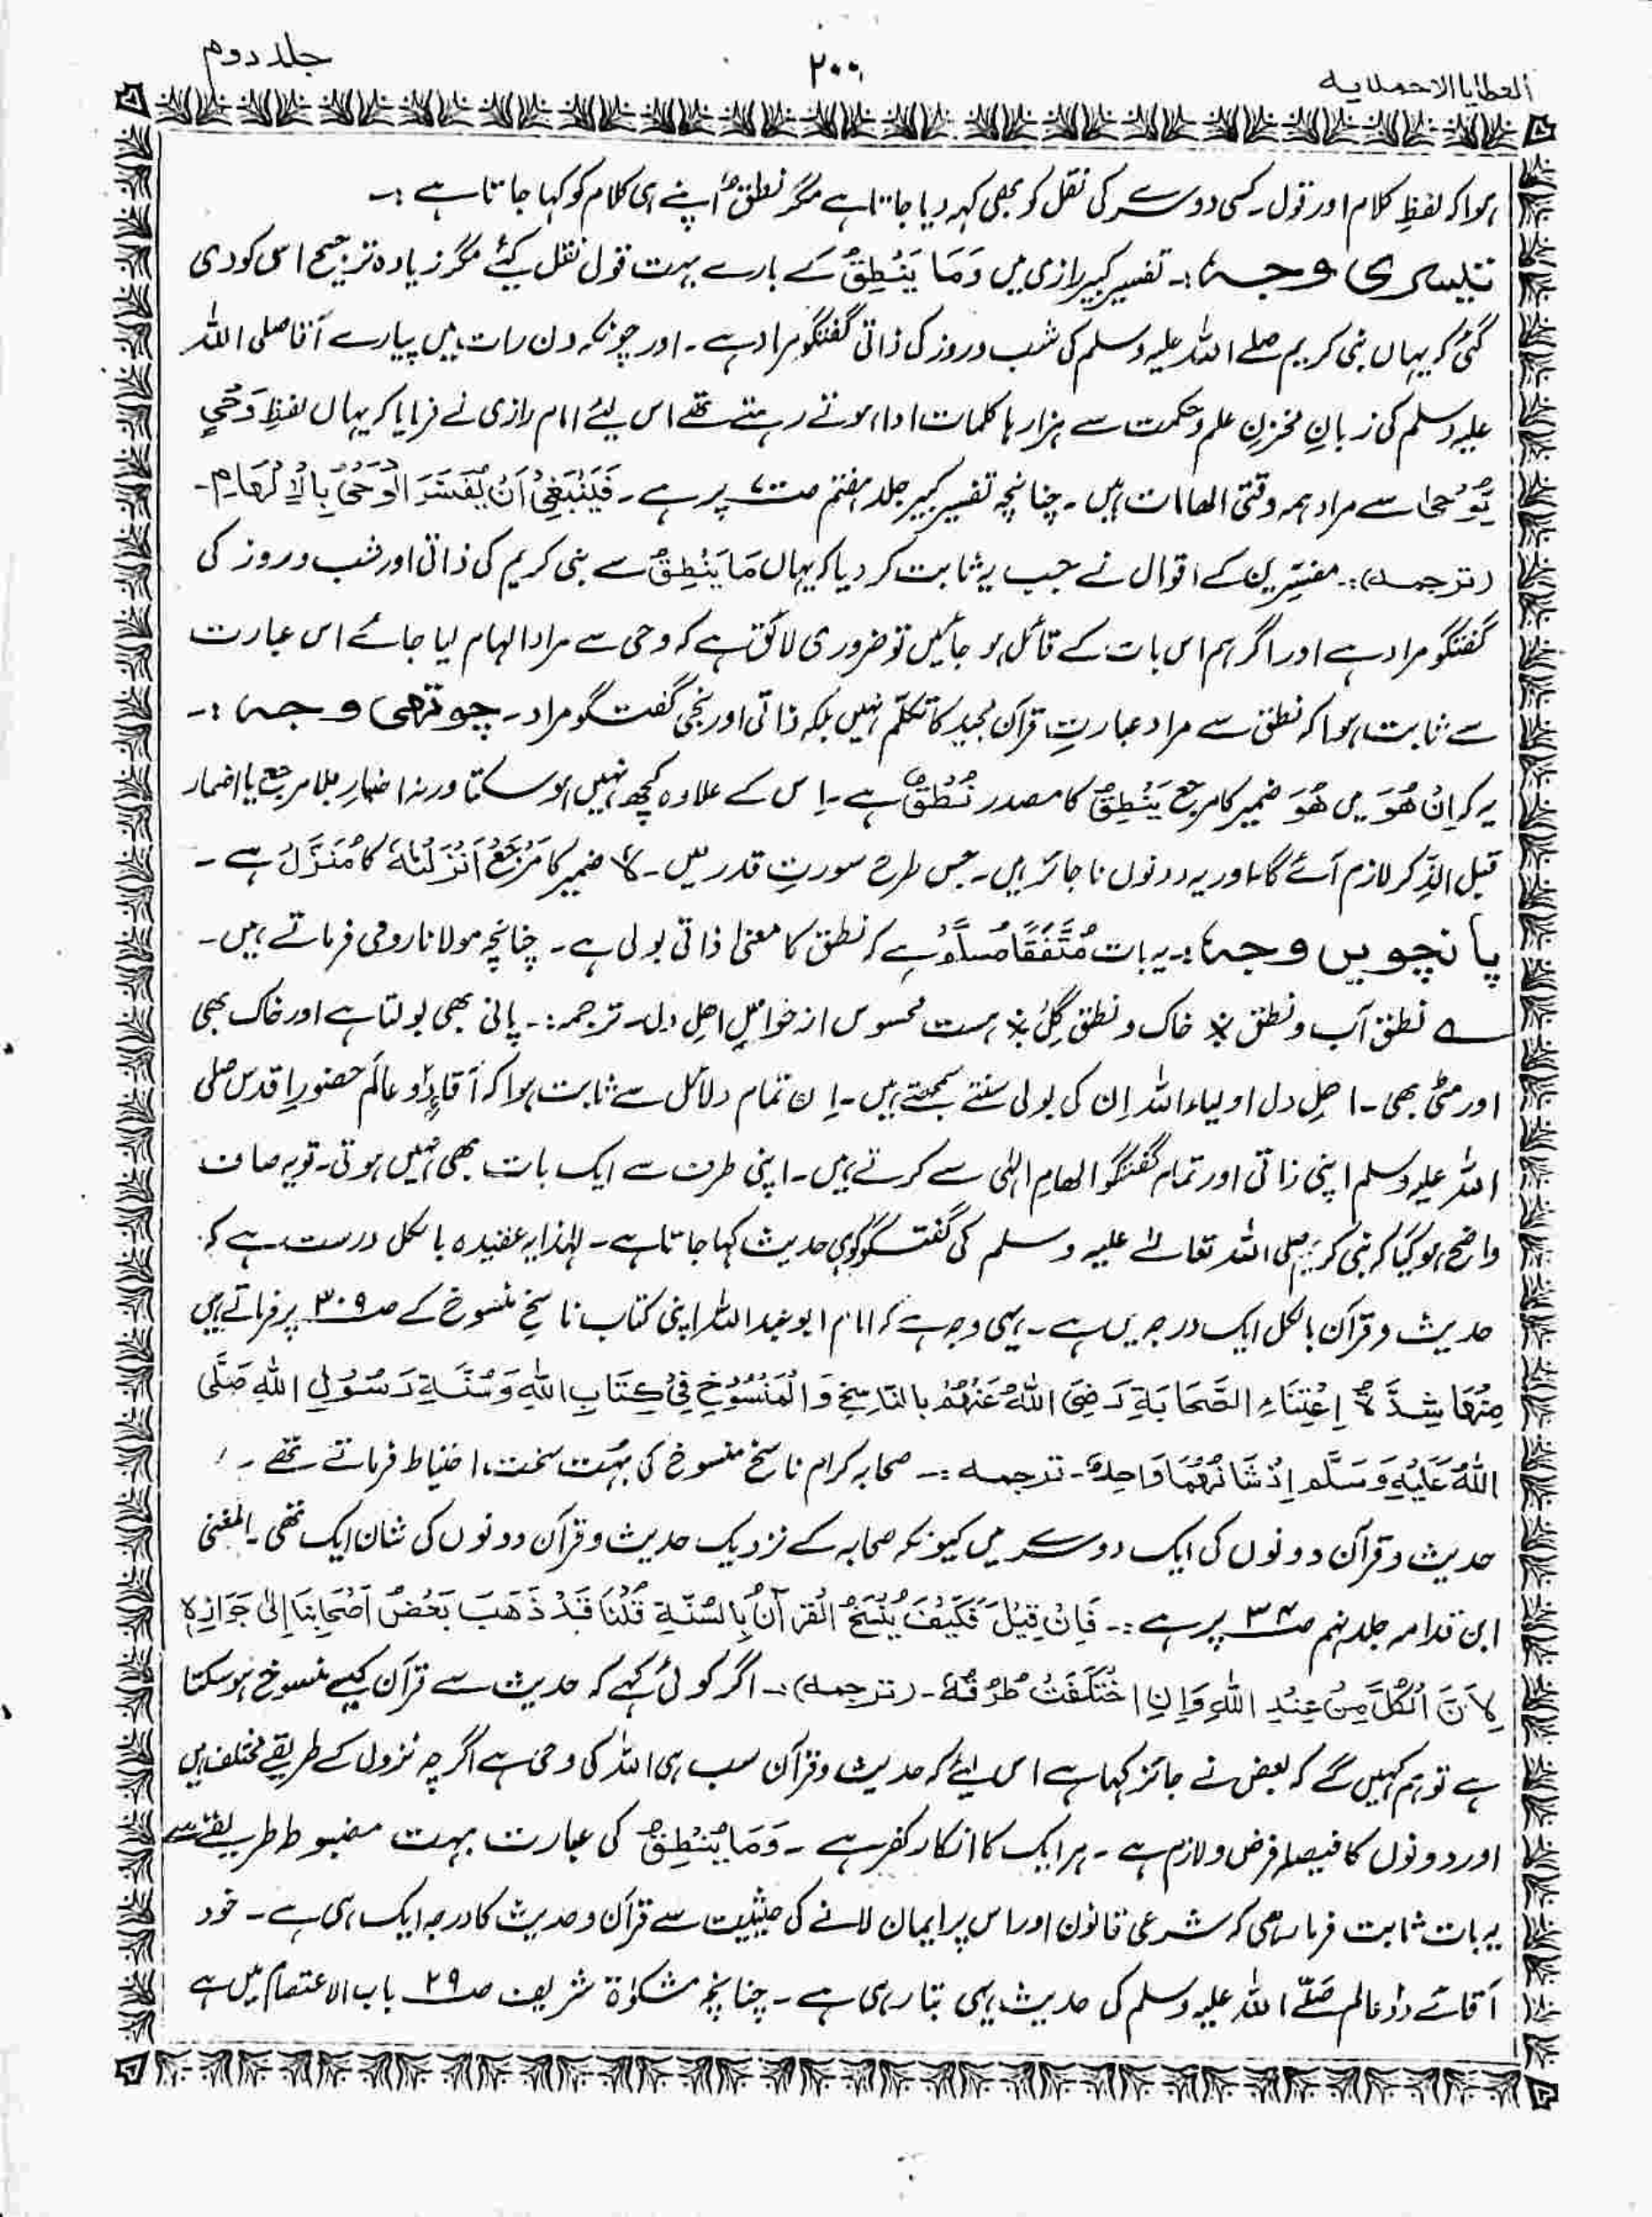 العطایا الاحمدیہ ۲۰۰ جلد دوم
ہوا کہ لفظِ کلام اور قول۔ کسی دوسرے کی نقل کو بھی کہہ دیا جاتا ہے مگر نُطْقٌ اپنے ہی کلام کو کہا جاتا ہے :۔
تیسری وجہ:۔ تفسیر کبیر رازی میں وَمَا یَنْطِقُ کے بارے بہت قول نقل کیئے مگر زیادہ ترجیح اسی کو دی
گئی کہ یہاں نبی کریم صلے اللہ علیہ وسلم کی شب و روز کی ذاتی گفتگو مراد ہے۔ اور چونکہ دن رات میں پیارے آقا صلی اللہ
علیہ وسلم کی زبانِ مخزنِ علم و حکمت سے ہزارہا کلمات ادا ہوتے رہتے تھے اس لیئے امام رازی نے فرمایا کہ یہاں لفظِ وَحْیٍ
یُوْحٰا سے مراد ہمہ وقتی الھامات ہیں۔ چنانچہ تفسیر کبیر جلد ہفتم صـ پر ہے۔ فَیَنْبَغِیْ اَنْ یُفَسَّرَ الْوَحْیُ بِالْاِلْہَامِ۔
(ترجمہ):۔ مفسّرین کے اقوال نے جب یہ ثابت کر دیا کہ یہاں مَا یَنْطِقُ سے نبی کریم کی ذاتی اور شب و روز کی
گفتگو مراد ہے اور اگر ہم اس بات کے قائل ہو جائیں تو ضروری لائق ہے کہ وحی سے مراد الہام لیا جائے اس عبارت
سے ثابت ہوا کہ نطق سے مراد عبارتِ قرآن مجید کا تکلّم نہیں بلکہ ذاتی اور نجی گفت گو مراد۔ چوتھی وجہ :۔
یہ کہ اِنْ ھُوَ میں ھُوَ ضمیر کا مرجع یَنْطِقُ کا مصدر نُطْقٌ ہے۔ اِس کے علاوہ کچھ نہیں ہو سکتا ورنہ اضمارِ بلا مرجع یا اضمار
قبل الذِّکر لازم آئے گا اور یہ دونوں ناجائز ہیں۔ جس طرح سورتِ قدر میں۔ ہٗ ضمیر کا مَرْجَعُ اَنْزَلْنَاہُ کا مُنَزَّلْ ہے۔
پانچویں وجہ:۔ یہ بات مُتَّفَقًا مُسلَّمْ ہے کہ نطق کا معنیٰ ذاتی بولی ہے۔ چنانچہ مولانا رومی فرماتے ہیں۔
؎ نطق آب و نطق ※ خاک و نطق گِلْ ※ ہست محسوس از خواصِ اھلِ دل۔ ترجمہ:۔ پانی بھی بولتا ہے اور خاک بھی
اور مٹی بھی۔ اھلِ دل اولیاء اللہ اِن کی بولی سنتے سمجھتے ہیں۔ اِن تمام دلائل سے ثابت ہوا کہ آقاءِ دو عالَم حضورِ اقدس صلی
اللہ علیہ وسلم اپنی ذاتی اور تمام گفتگو الھامِ الٰہی سے کرتے ہیں۔ اپنی طرف سے ایک بات بھی نہیں ہوتی۔ تو یہ صاف
واضح ہو گیا کہ نبی کریم صلی اللہ تعالےٰ علیہ وسلم کی گفتگو کو ہی حدیث کہا جاتا ہے۔ لہٰذا یہ عقیدہ بالکل درست ہے کہ
حدیث و قرآن بالکل ایک درجہ میں ہے۔ یہی وجہ ہے کہ امام ابو عبد اللہ اپنی کتاب ناسخ منسوخ کے صـ ۳۰۹ پر فرماتے ہیں
مِنْھَا شِدَّۃُ اِعْتِنَاءِ الصَّحَابَۃِ رَضِیَ اللہُ عَنْھُمْ بِالنَّاسِخِ وَ الْمَنْسُوْخِ فِیْ کِتَابِ اللہِ وَ سُنَّۃِ رَسُوْلِ اللہِ صَلَّی
اللہُ عَلَیْہِ وَسَلَّم اِذْ شَانُھُمَا وَاحِدٌ۔ ترجمہ :۔ صحابہ کرام ناسخ منسوخ کی بہت سخت احتیاط فرماتے تھے۔
حدیث و قرآن دونوں کی ایک دوسرے میں کیونکہ صحابہ کے نزدیک حدیث و قرآن دونوں کی شان ایک تھی۔ المغنی
ابن قدامہ جلد نہم صـ ۳۴ پر ہے :۔ فَاِنْ قِیْلَ فَکَیْفَ یُنْسَخُ الْقُرآنُ بِالسُّنَّۃِ قُلْنَا قَدْ ذَھَبَ بَعْضُ اَصْحَابِنَا اِلیٰ جَوَازِہٖ
لِاَنَّ الْکُلَّ مِنْ عِنْدِ اللہِ وَاِنِ اخْتَلَفَتْ طُرُقُہٗ۔ (ترجمہ):۔ اگر کوئی کہے کہ حدیث سے قرآن کیسے منسوخ ہو سکتا
ہے تو ہم کہیں گے کہ بعض نے جائز کہا ہے اس لیئے کہ حدیث و قرآن سب ہی اللہ کی وحی ہے اگرچہ نزول کے طریقے مختلف ہیں
اور دونوں کا فیصلہ فرض و لازم ہے۔ ہر ایک کا انکار کفر ہے۔ وَمَا یَنْطِقُ کی عبارت بہت مضبوط طریقے سے
یہ بات ثابت فرما رہی کہ شرعی قانون اور اس پر ایمان لانے کی حیثیت سے قرآن و حدیث کا درجہ ایک ہی ہے۔ خود
آقائے دو عالم صَلّے اللہ علیہ وسلم کی حدیث یہی بتا رہی ہے۔ چنانچہ مشکوٰۃ شریف صـ ۲۹ باب الاعتصام میں ہے